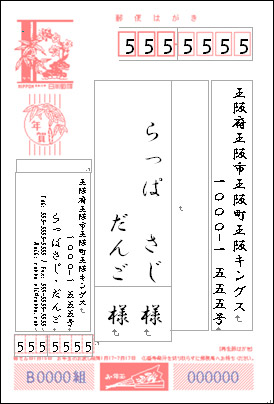 郵便はがき
NIPPON 日本郵便
年賀
555 5555
正阪府正阪市正阪町正阪キングス
一〇〇〇-一 五五五号
らっぱ さじ 様
だんご 様
正阪府正阪市正阪町正阪キングス
一〇〇〇-一 五五五号
らっぱさじ・だんご
Tel: 555-5555-5555 / Fax: 555-5555-5555
555 5555
お年玉
B0000組
000000